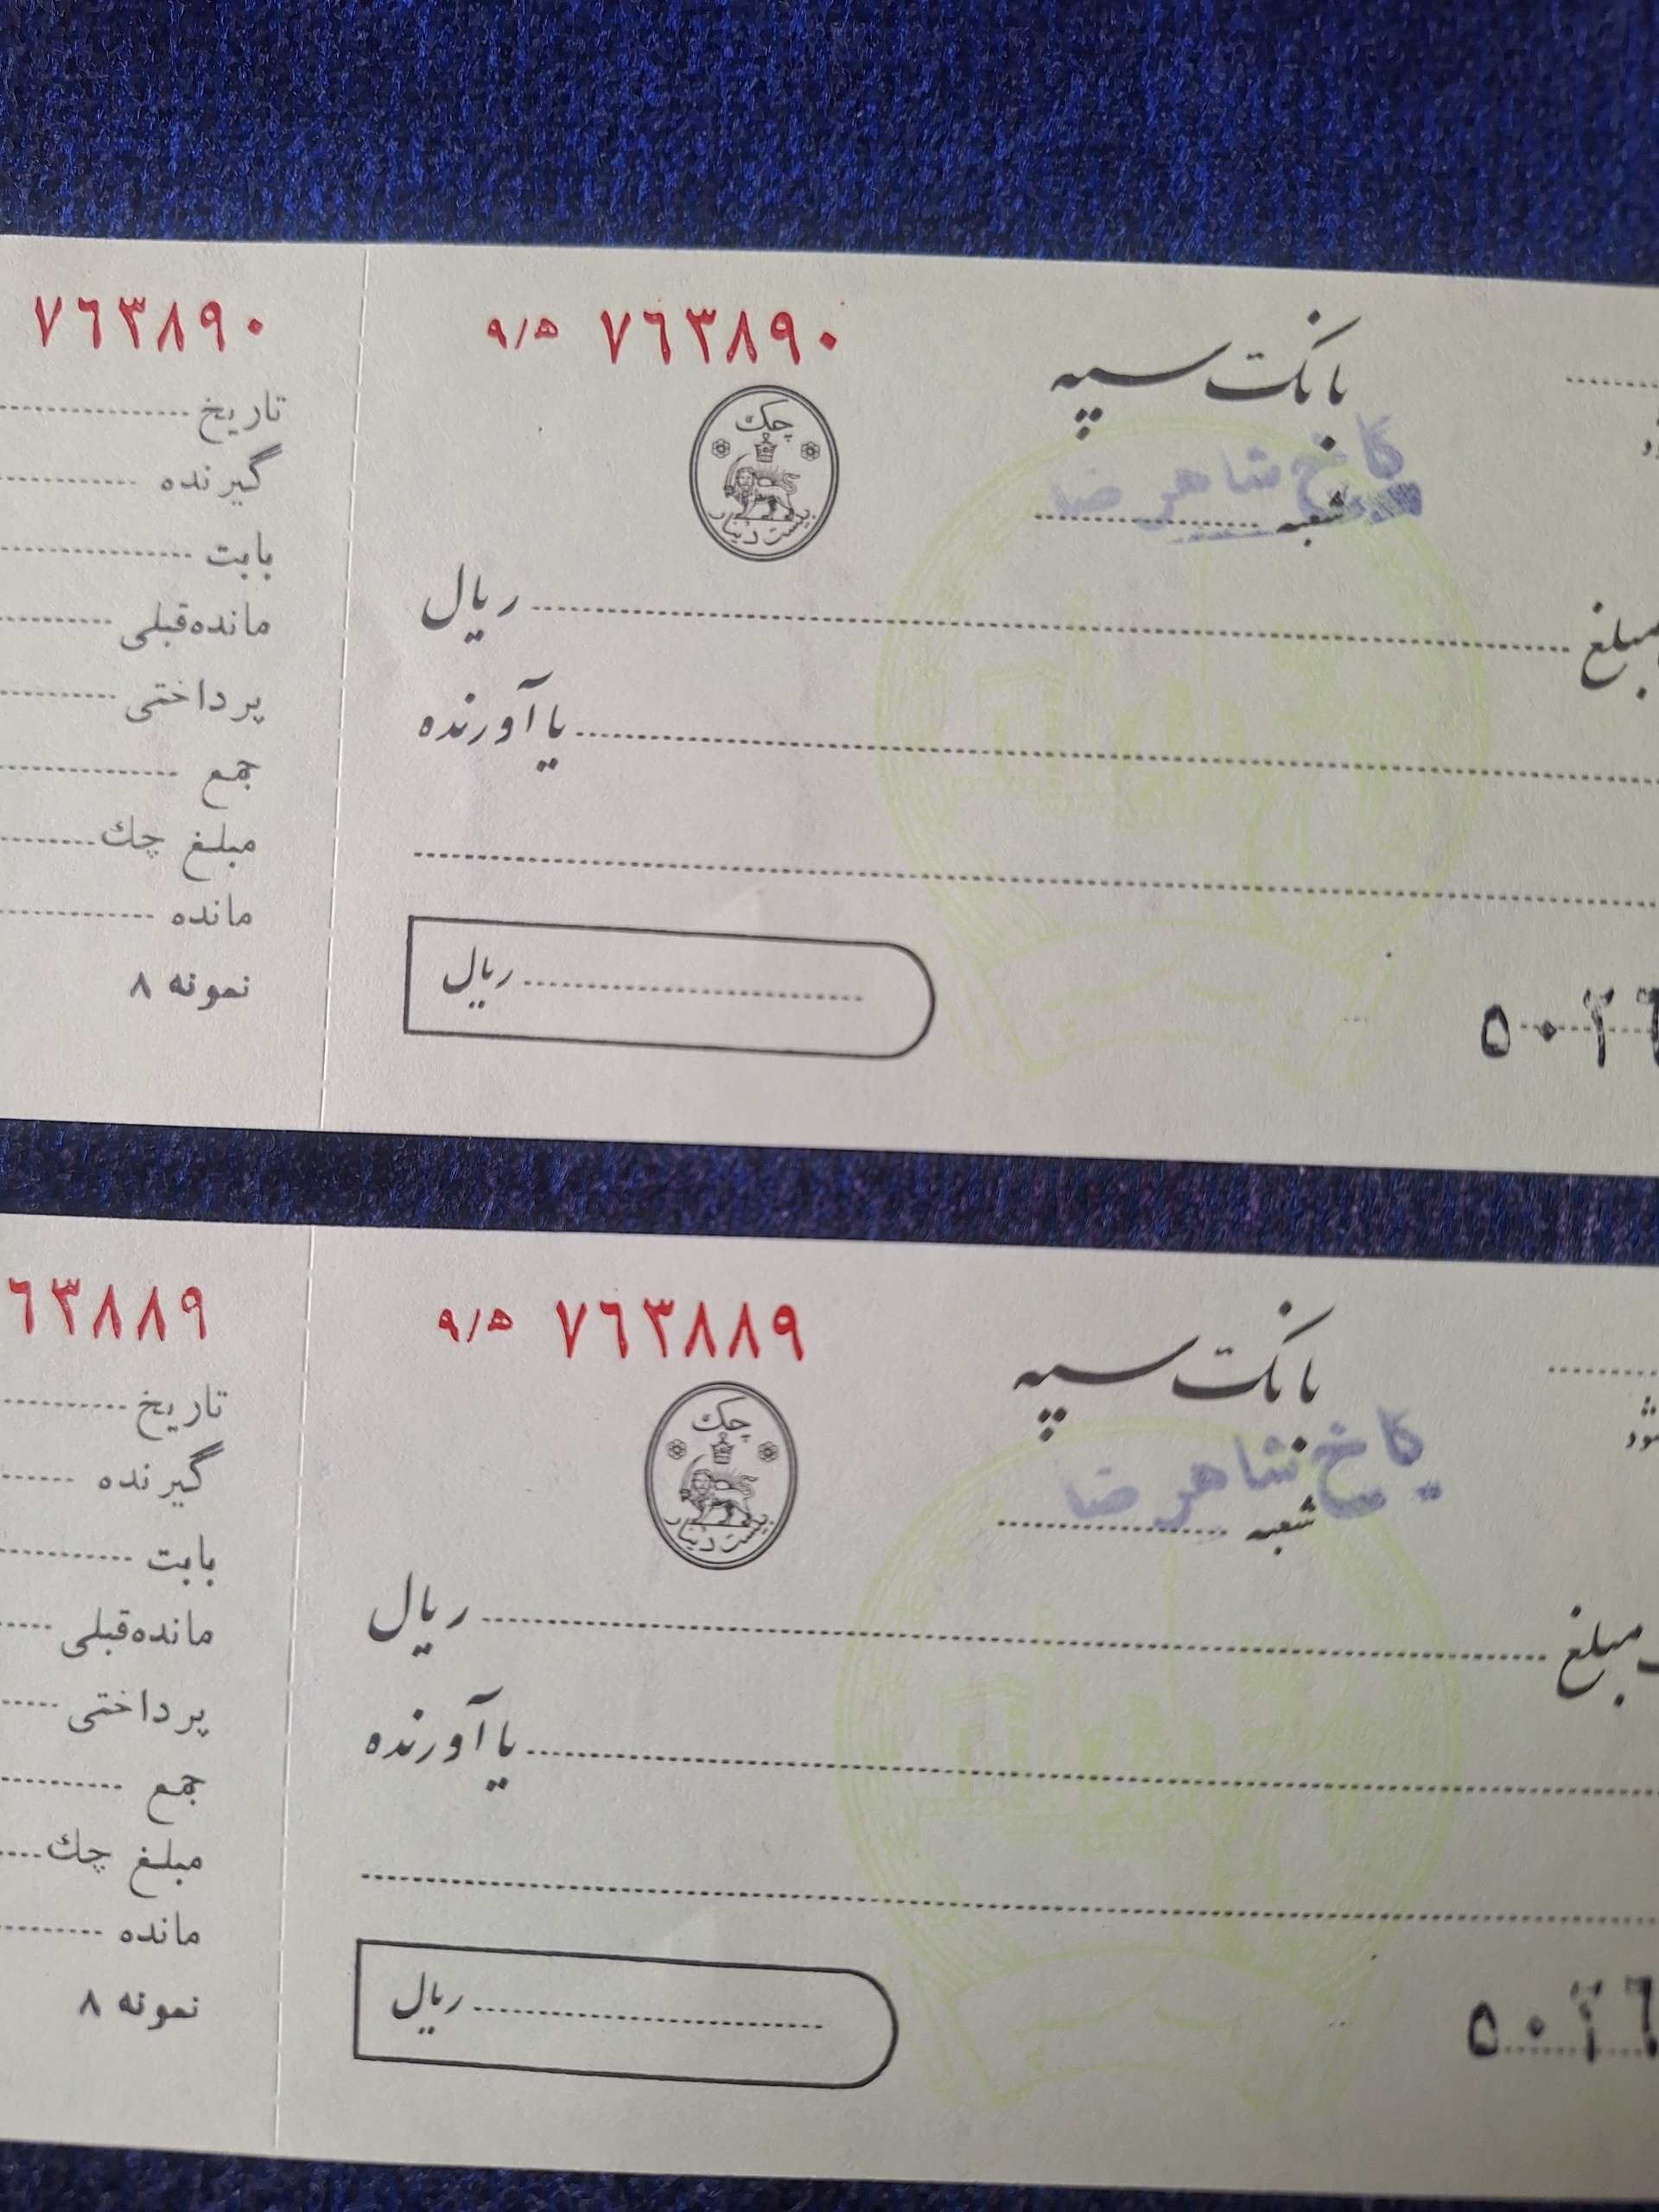 ۷٦۳۸۹۰
تاریخ
گیرنده
بابت
مانده‌قبلی
پرداختی
جمع
مبلغ چك
مانده
نمونه ۸
۹/ﻫ ۷٦۳۸۹۰
بانک سپه
کاخ شاهرضا
شعبه
چک
بیست دینار
مبلغ ریال
یا آورنده
ریال
٦۳۸۸۹
تاریخ
گیرنده
بابت
مانده‌قبلی
پرداختی
جمع
مبلغ چك
مانده
نمونه ۸
۹/ﻫ ۷٦۳۸۸۹
بانک سپه
کاخ شاهرضا
شعبه
چک
بیست دینار
مبلغ ریال
یا آورنده
ریال